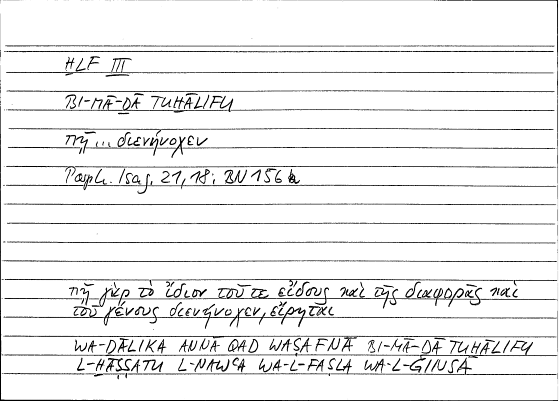 ḪLF III
BI-MĀ-ḎĀ TUḪĀLIFU
πῇ ... διενήνοχεν
Porph. Isag. 21,18; BN 156 b
πῇ γὰρ τὸ ἴδιον τοῦ τε εἴδους καὶ τῆς διαφορᾶς καὶ
τοῦ γένους διενήνοχεν, εἴρηται
WA-ḎĀLIKA ANNĀ QAD WAṢAFNĀ BI-MĀ-ḎĀ TUḪĀLIFU
L-ḪĀṢṢATU L-NAWʿA WA-L-FAṢLA WA-L-ǦINSA